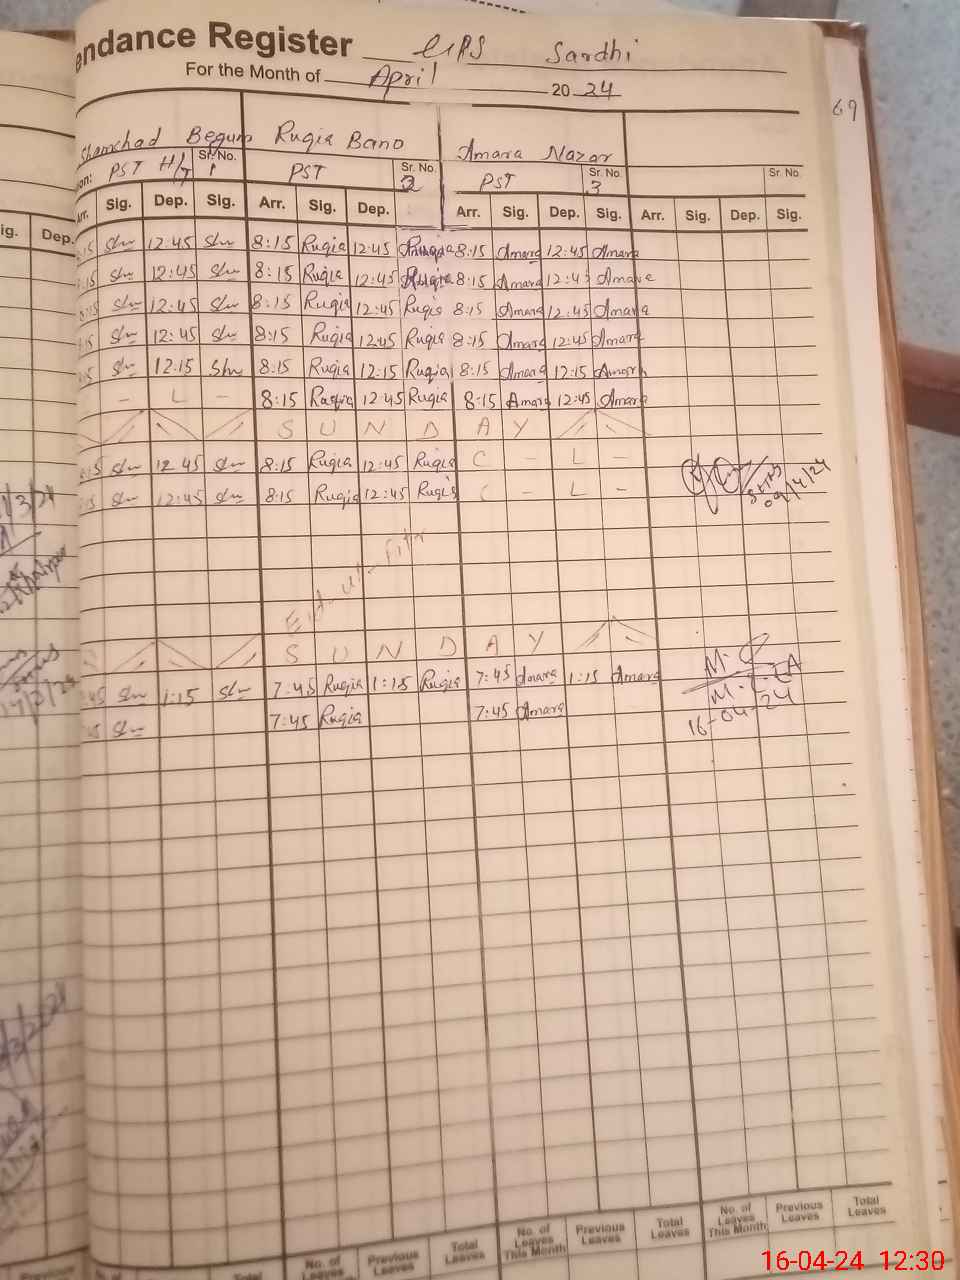 endance Register GPS Sardhi
For the Month of April 2024
69
Shamshad Begum Ruqia Bano Amara Nazar
ion: PST H/T Sr. No. 1 PST Sr. No. 2 PST Sr. No. 3 Sr. No.
ig. Dep. Arr. Sig. Dep. Sig. Arr. Sig. Dep. Arr. Sig. Dep. Sig. Arr. Sig. Dep. Sig.
:15 12:45 8:15 Ruqia 12:45 Ruqia 8:15 Amara 12:45 Amara
:15 12:45 8:15 Ruqia 12:45 Ruqia 8:15 Amara 12:45 Amara
8:15 12:45 8:15 Ruqia 12:45 Ruqia 8:15 Amara 12:45 Amara
:15 12:45 8:15 Ruqia 12:45 Ruqia 8:15 Amara 12:45 Amara
:15 12:15 8:15 Ruqia 12:15 Ruqia 8:15 Amara 12:15 Amara
- L - 8:15 Ruqia 12:45 Ruqia 8:15 Amara 12:45 Amara
S U N D A Y
8:15 12 45 8:15 Ruqia 12:45 Ruqia C - L -
:15 12:45 8:15 Ruqia 12:45 Ruqia C - L -
09/4/24
Eid-ul-Fitr
S U N D A Y
:45 1:15 7:45 Ruqia 1:15 Ruqia 7:45 Amara 1:15 Amara
:45 7:45 Ruqia 7:45 Amara
16-04-24
Total No. of Leaves Previous Leaves Total Leaves No. of Leaves This Month Previous Leaves Total Leaves No. of Leaves This Month Previous Leaves Total Leaves
16-04-24 12:30